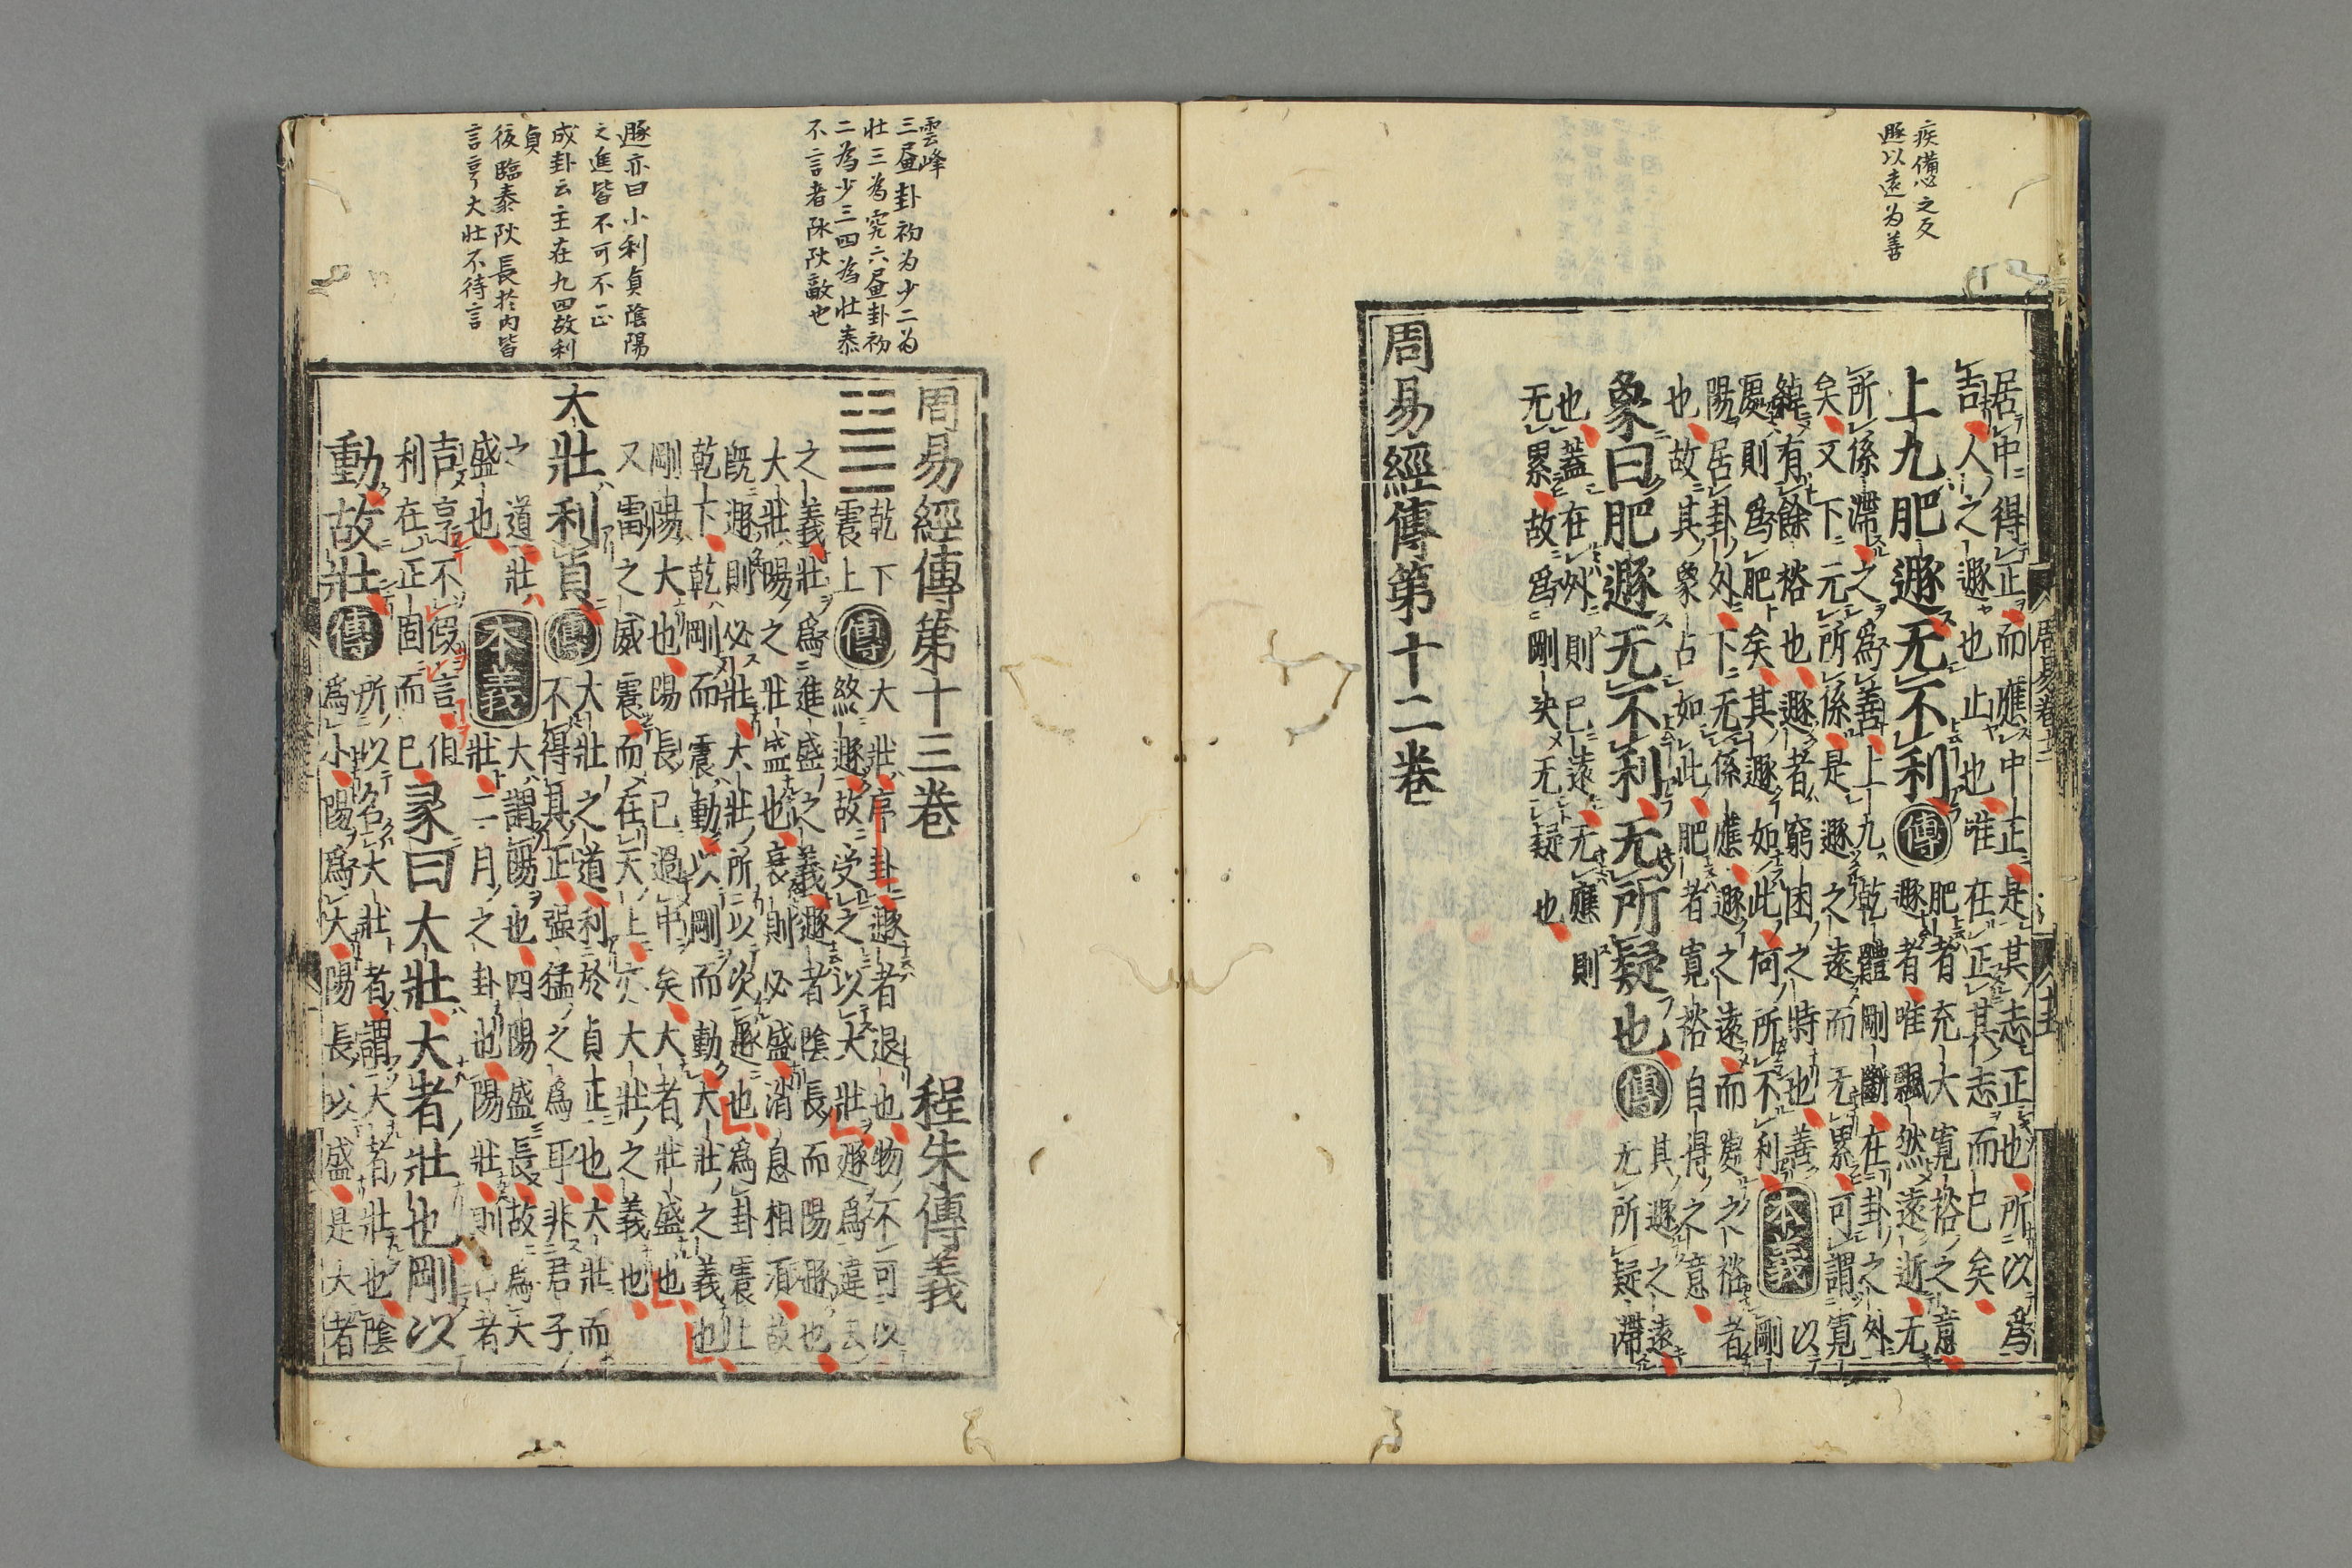 疾憊之反
遯以遠為善
居中得正而應中正是其志正也所以爲
吉人之遯也止也唯在正其志而已矣
上九肥遯无不利傳肥者充大寬裕之意
遯者唯飄然遠逝无
所係滯之爲善上九乾體剛斷在卦之外
矣又下无所係是遯之遠而无累可謂寬
綽有餘裕也遯者窮困之時也善
處則爲肥矣其遯如此何所不利本義以
剛
陽居卦外下无係應遯之遠而處之裕者
也故其象占如此肥者寬裕自得之意
象曰肥遯无不利无所疑也傳其遯之遠
无所疑滯
也蓋在外則已遠无應則
无累故爲剛決无疑也
周易經傳第十二卷
周易卷十二
雲峰
三畫卦初为少二为
壮三為究六畫卦初
二為少三四為壮泰
不言者陰陽敵也
遯亦曰小利貞陰陽
之進皆不可不正
成卦云主在九四故利
貞
復臨泰陽長於内皆
言亨大壯不待言
周易經傳第十三卷 程朱傳義
乾下
震上
傳大壯序卦遯者退也物不可以
終遯故受之以大壯遯爲違去
之義壯爲進盛之義遯者陰長而陽遯也
大壯陽之壯盛也衰則必盛消息相須故
既遯則必壯大壯所以次遯也爲卦震上
乾下乾剛而震動以剛而動大壯之義也
剛陽大也陽長已過中矣大者壯盛也
又雷之威震而在天上亦大壯之義也
大壯利貞傳大壯之道利於貞正也大壯而
不得其正強猛之爲耳非君子
之道壯
盛也本義大謂陽也四陽盛長故爲大
壯二月之卦也陽壯則占者
吉亨不假言但
利在正固而已
彖曰大壯大者壯也剛以
動故壯傳所以名大壯者謂大者壯也陰
爲小陽爲大陽長以盛是大者